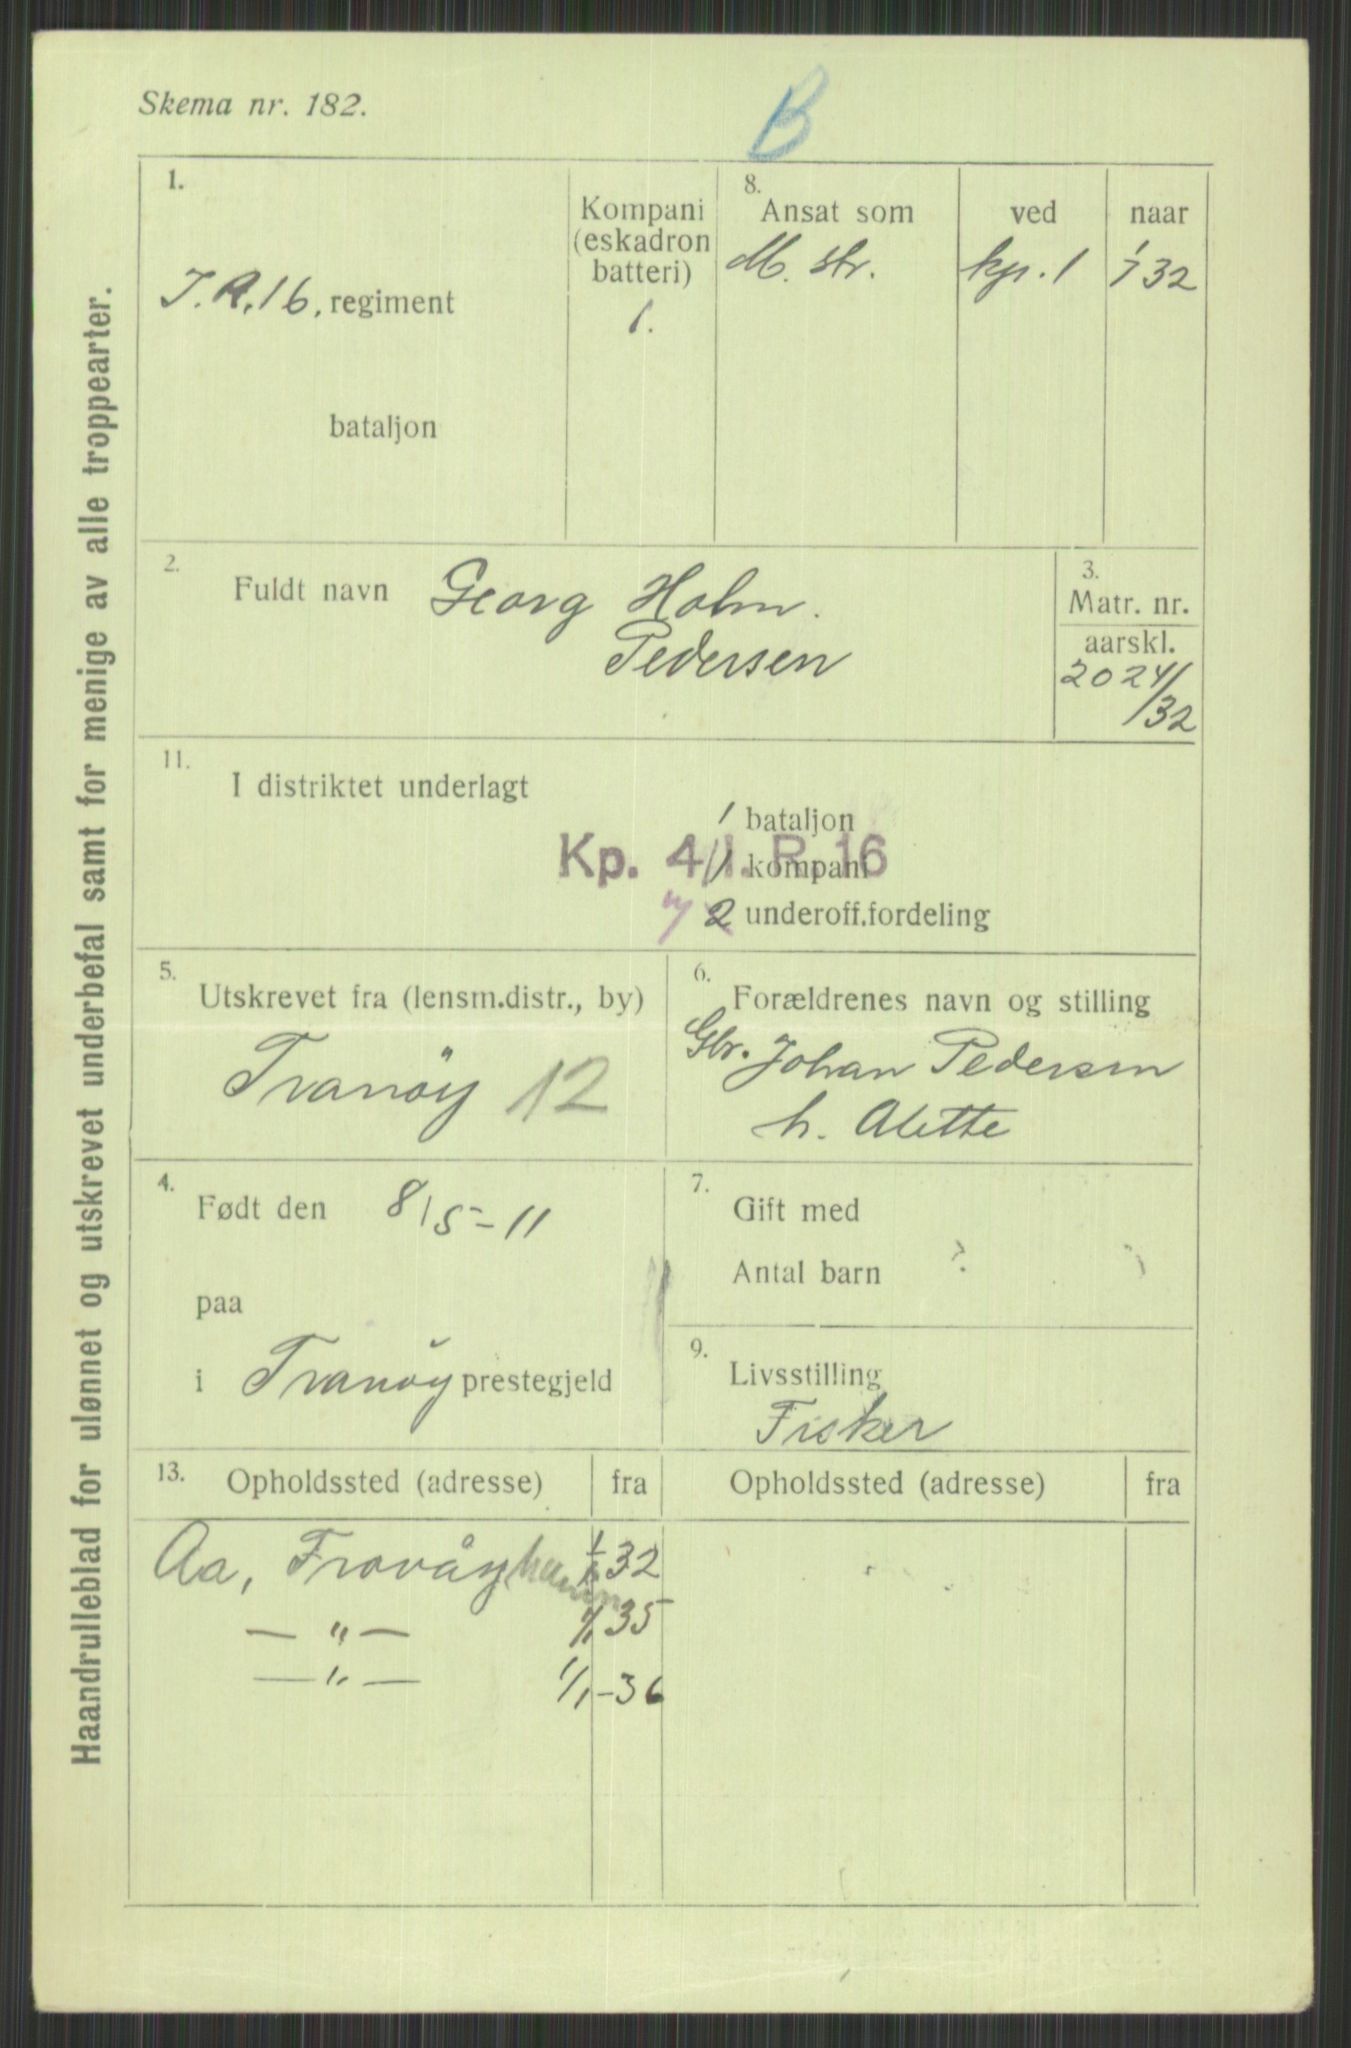 Skema nr. 182.
B
Haandrulleblad for ulønnet og utskrevet underbefal samt for menige av alle troppearter.
1.
J. R. 16. regiment
bataljon
Kompani
(eskadron
batteri)
1.
8.
Ansat som
M. str.
ved
kp. 1
naar
32
2.
Fuldt navn Georg Holm.
Pedersen
3.
Matr. nr.
aarskl.
2024/
/32
11.
I distriktet underlagt
1 bataljon
Kp. 4 I. R. 16
1 kompani
2 underoff.fordeling
5.
Utskrevet fra (lensm.distr., by)
Tranöy 12
6.
Forældrenes navn og stilling
Gbr. Johan Pedersen
h. Alette
4.
Født den 8/5-11
paa
i Tranöy prestegjeld
7.
Gift med
Antal barn
9.
Livsstilling
Fisker
13.
Opholdssted (adresse) fra
Opholdssted (adresse) fra
Aa, Frovåghamn 32
— " — 1/1 35
— " — 1/1-36